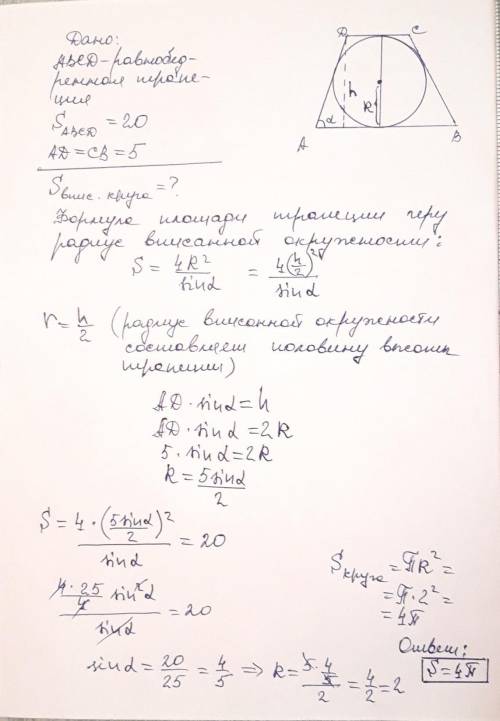 Дано:
ABCD – равнобед-
ренная трапе-
ция
S_ABCD = 20
AD = CB = 5
S_впис. круга = ?
D C
h
R
α
A B
Формула площади трапеции через
радиус вписанной окружности:
S = 4R²/sinα = 4(h/2)²/sinα
r = h/2 (радиус вписанной окружности
составляет половину высоты
трапеции)
AD · sinα = h
AD · sinα = 2R
5 · sinα = 2R
R = 5sinα/2
S = 4 · (5sinα/2)²/sinα = 20
4 · 25/4 sin²α/sinα = 20
sinα = 20/25 = 4/5 ⇒ R = 5 · 4/5/2 = 4/2 = 2
S_круга = πR² =
= π · 2² =
= 4π
Ответ:
S = 4π